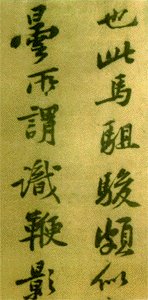 也此馬駔駿頗似
曇所謂識鞭影